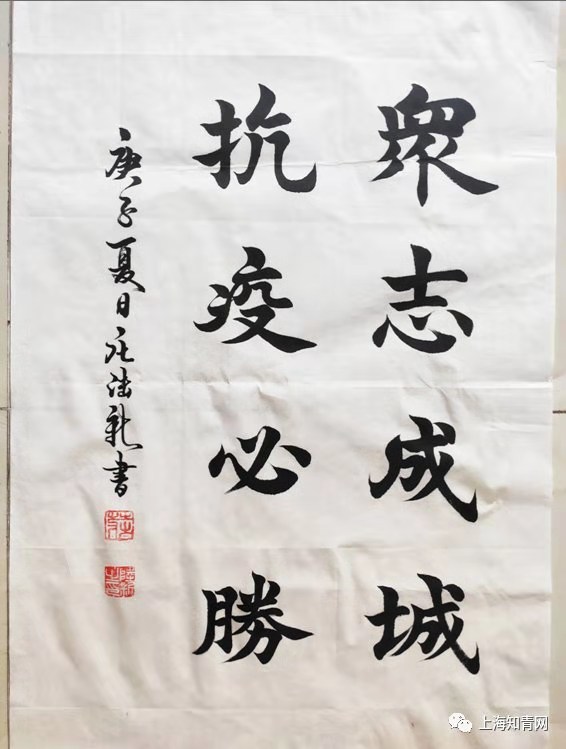 眾志成城
抗疫必勝
庚子夏日 書
上海知青网